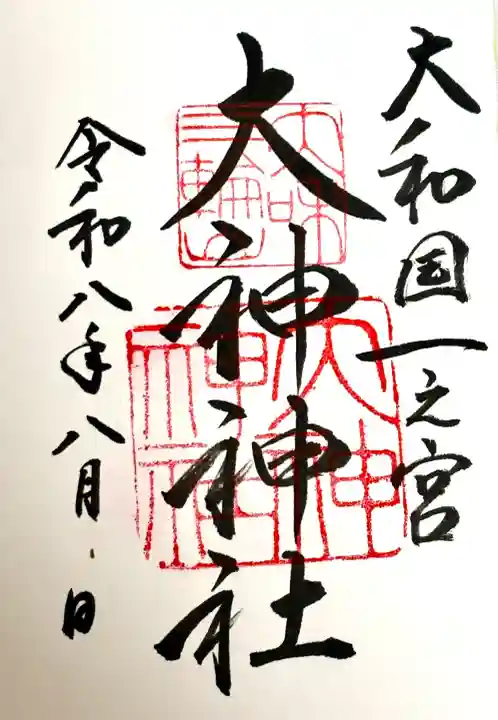 大和国一之宮
大神神社
令和八年八月 日